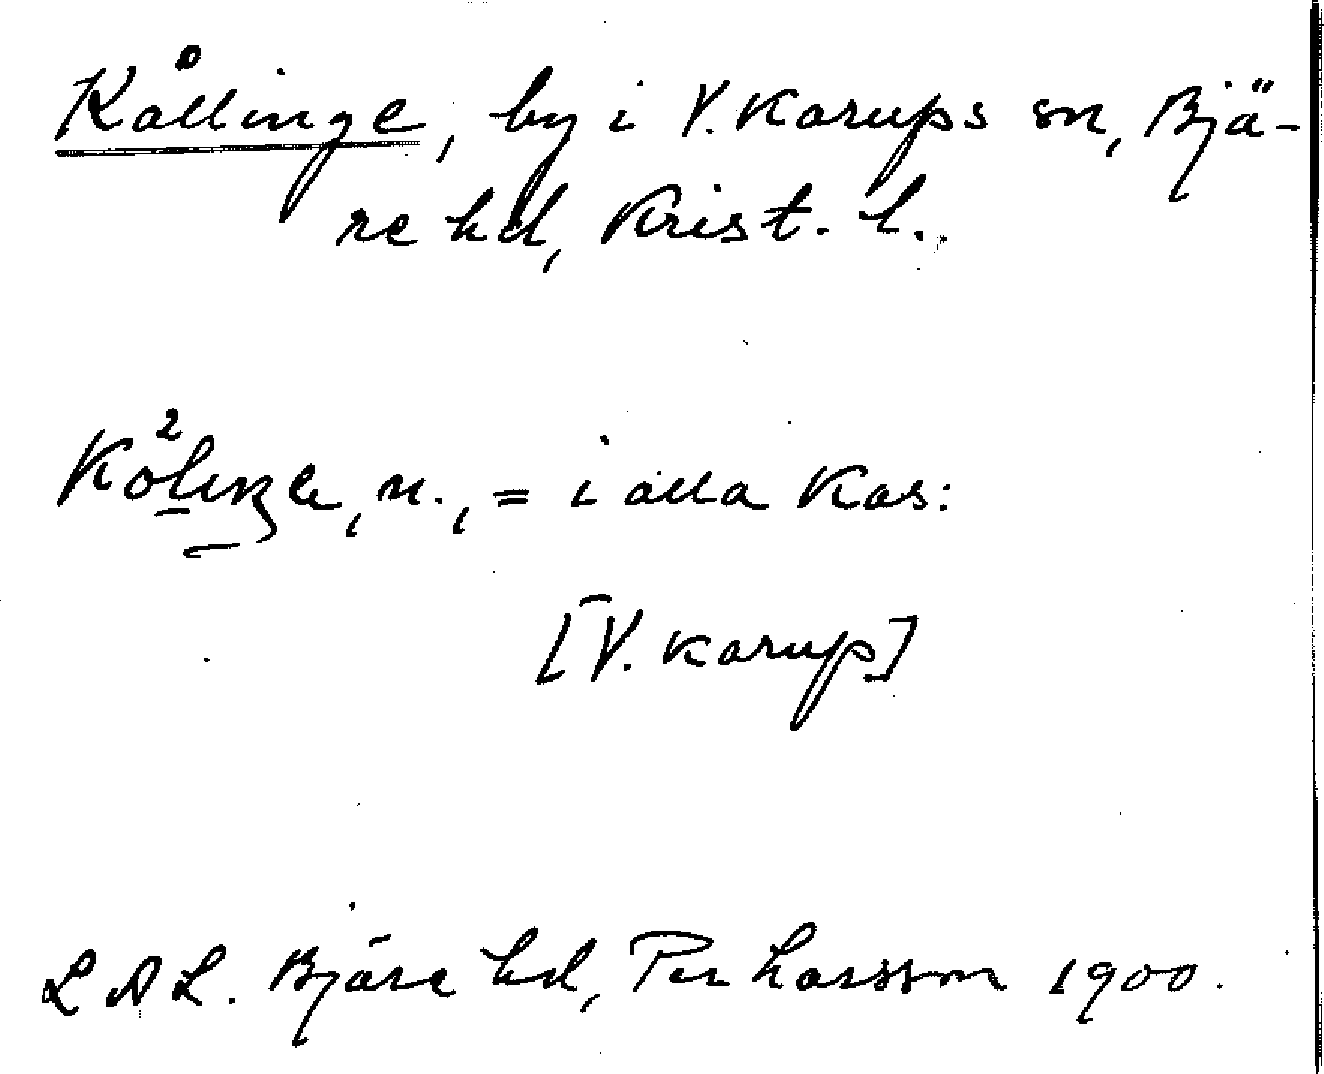 Kållinge, by i V. Karups sn, Bjä-
re hd, Krist. l.
n., = i alla kas:
[V. Karup]
L A L. Bjäre hd, Per Larsson 1900.